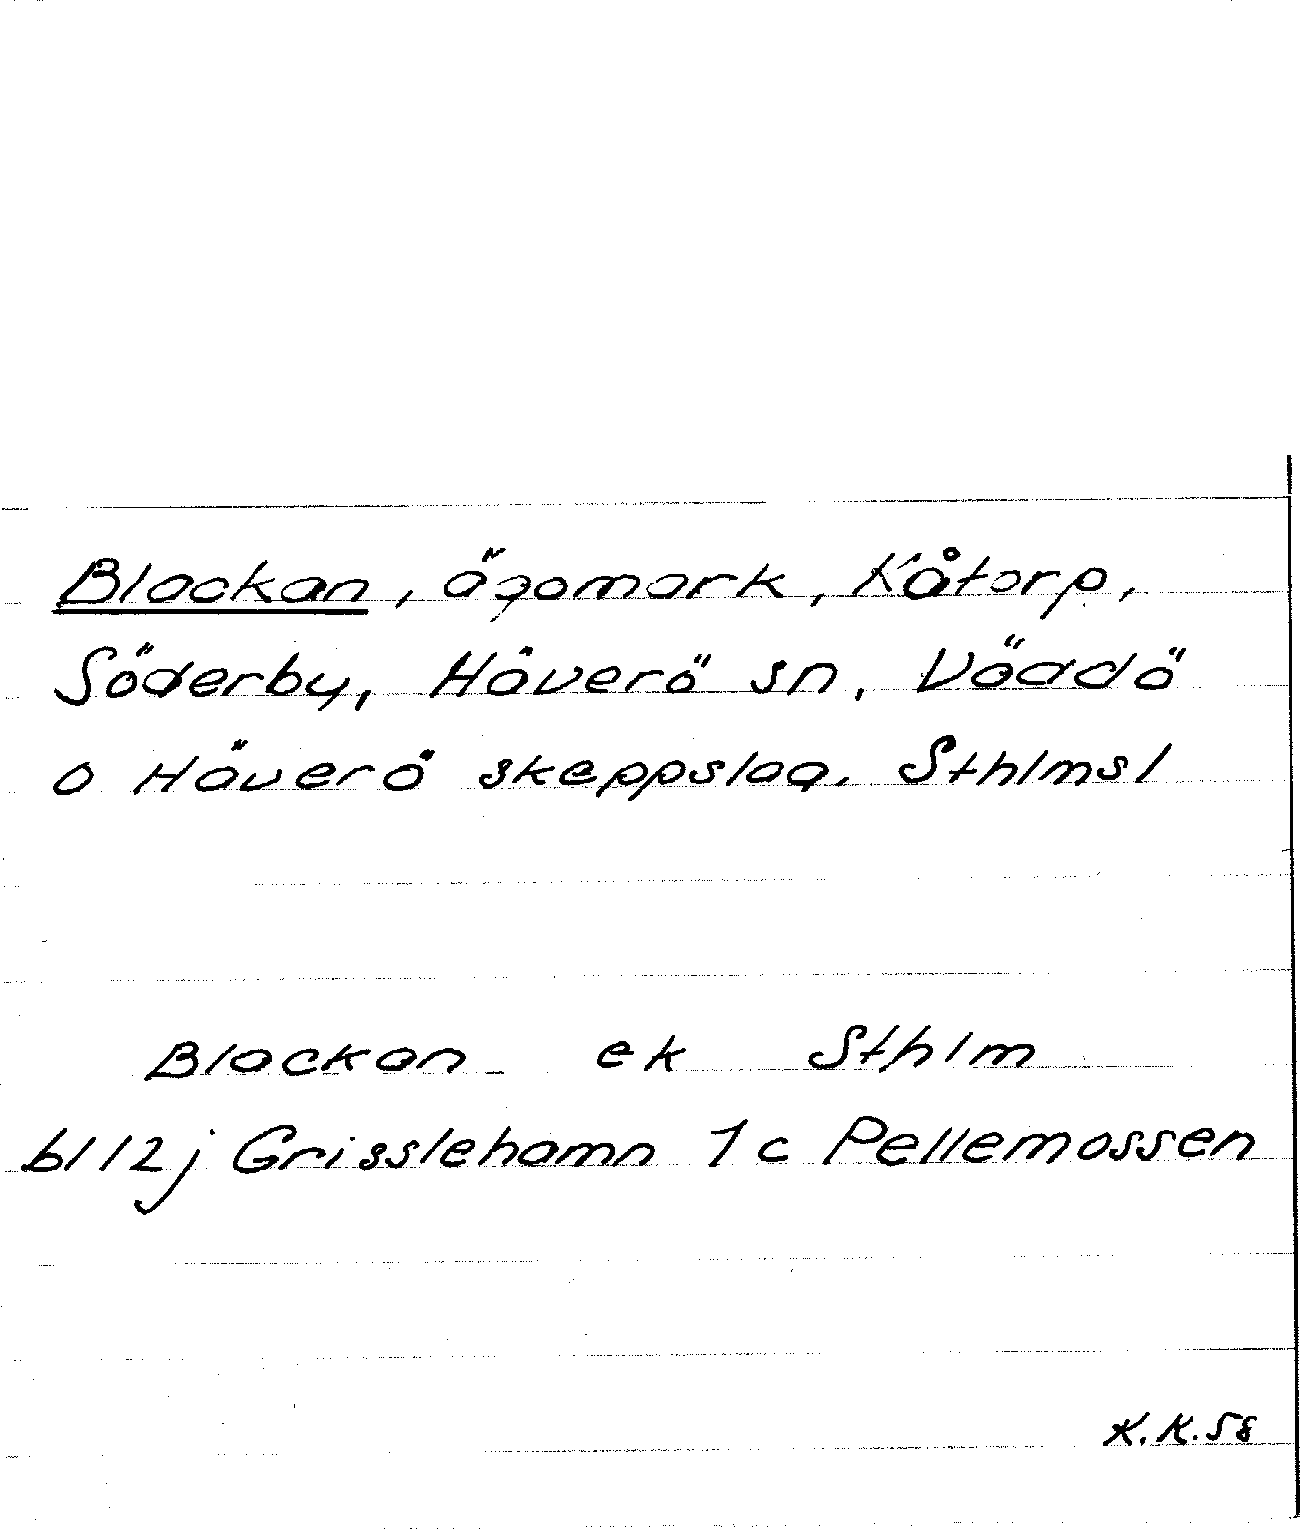 Blackan, ägomark, Kåtorp,
Söderby, Häverö sn, Väddö
o Häverö skeppslag. Sthlmsl
Blackan ek Sthlm
bl 12j Grisslehamn 1c Pellemossen
K.K.58